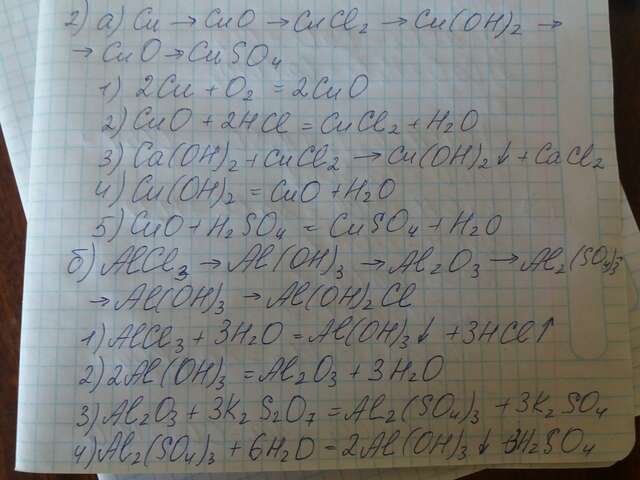 2) а) Cu → CuO → CuCl₂ → Cu(OH)₂ →
→ CuO → CuSO₄
1) 2Cu + O₂ = 2CuO
2) CuO + 2HCl = CuCl₂ + H₂O
3) Ca(OH)₂ + CuCl₂ → Cu(OH)₂↓ + CaCl₂
4) Cu(OH)₂ = CuO + H₂O
5) CuO + H₂SO₄ = CuSO₄ + H₂O
б) AlCl₃ → Al(OH)₃ → Al₂O₃ → Al₂(SO₄)₃
→ Al(OH)₃ → Al(OH)₂Cl
1) AlCl₃ + 3H₂O = Al(OH)₃↓ + 3HCl↑
2) 2Al(OH)₃ = Al₂O₃ + 3H₂O
3) Al₂O₃ + 3K₂S₂O₇ = Al₂(SO₄)₃ + 3K₂SO₄
4) Al₂(SO₄)₃ + 6H₂O = 2Al(OH)₃↓ + 3H₂SO₄